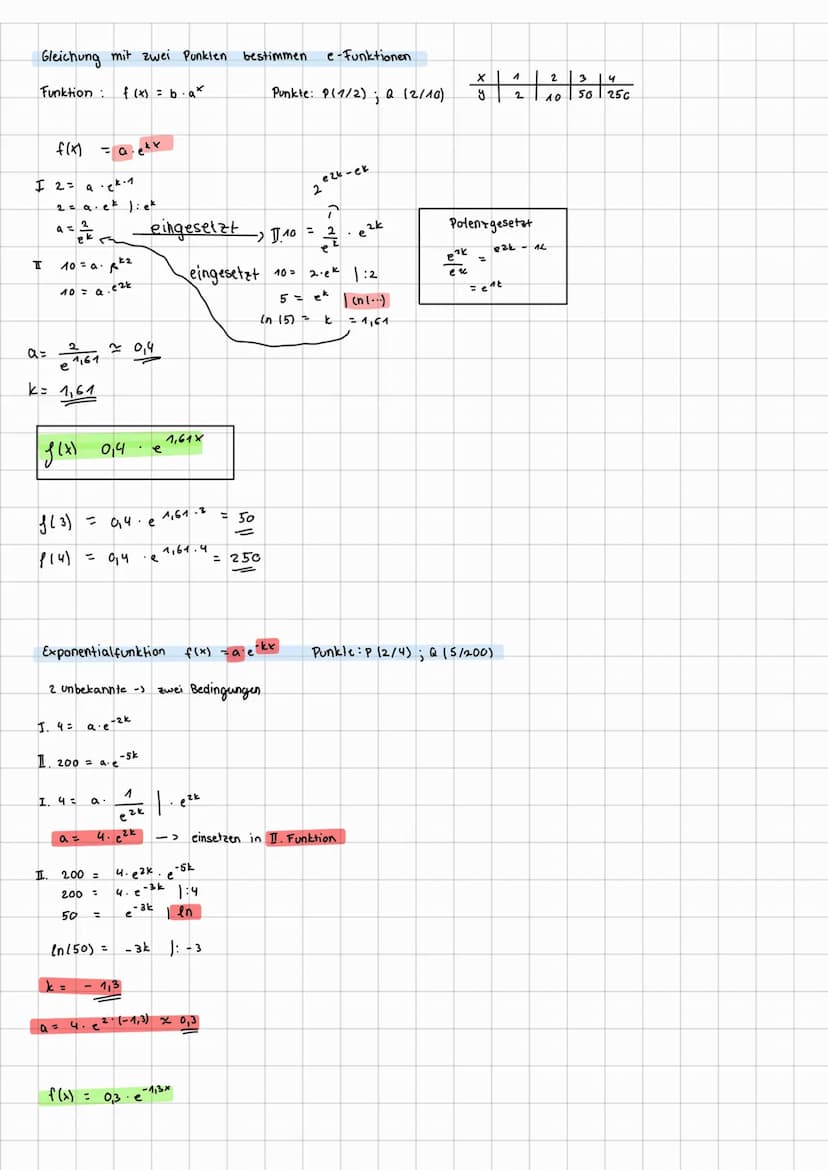 Gleichung mit zwei Punkten bestimmen e-Funktionen
Funktion : f(x) = b · aˣ Punkte: P(1/2) ; Q (2/10)
x | 1 | 2 | 3 | 4
y | 2 | 10 | 50 | 250
f(x) = a · e^kx
I 2 = a · e^k·1
2 = a · e^k |: e^k
a = 2/e^k
II 10 = a · e^k2
10 = a · e^2k
eingesetzt
2^e2k-ek
II. 10 = 2/e^k · e^2k
eingesetzt 10 = 2·e^k |:2
5 = e^k | ln(...)
ln(5) = k = 1,61
Potenzgesetzt
e^2k/e^k = e^2k-1k
= e^1k
a = 2/e^1,61 ≈ 0,4
k = 1,61
f(x) 0,4 · e^1,61x
f(3) = 0,4 · e^1,61·3 = 50
f(4) = 0,4 · e^1,61·4 = 250
Exponentialfunktion f(x) = a·e^-kx Punkte: P (2/4) ; Q (5/200)
2 Unbekannte -> zwei Bedingungen
I. 4 = a·e^-2k
II. 200 = a·e^-5k
I. 4 = a · 1/e^2k | · e^2k
a = 4·e^2k —> einsetzen in II. Funktion
II. 200 = 4·e^2k · e^-5k
200 = 4·e^-3k |:4
50 = e^-3k | ln
ln(50) = -3k |: -3
k = - 1,3
a = 4·e^2·(-1,3) ≈ 0,3
f(x) = 0,3 · e^-1,3x